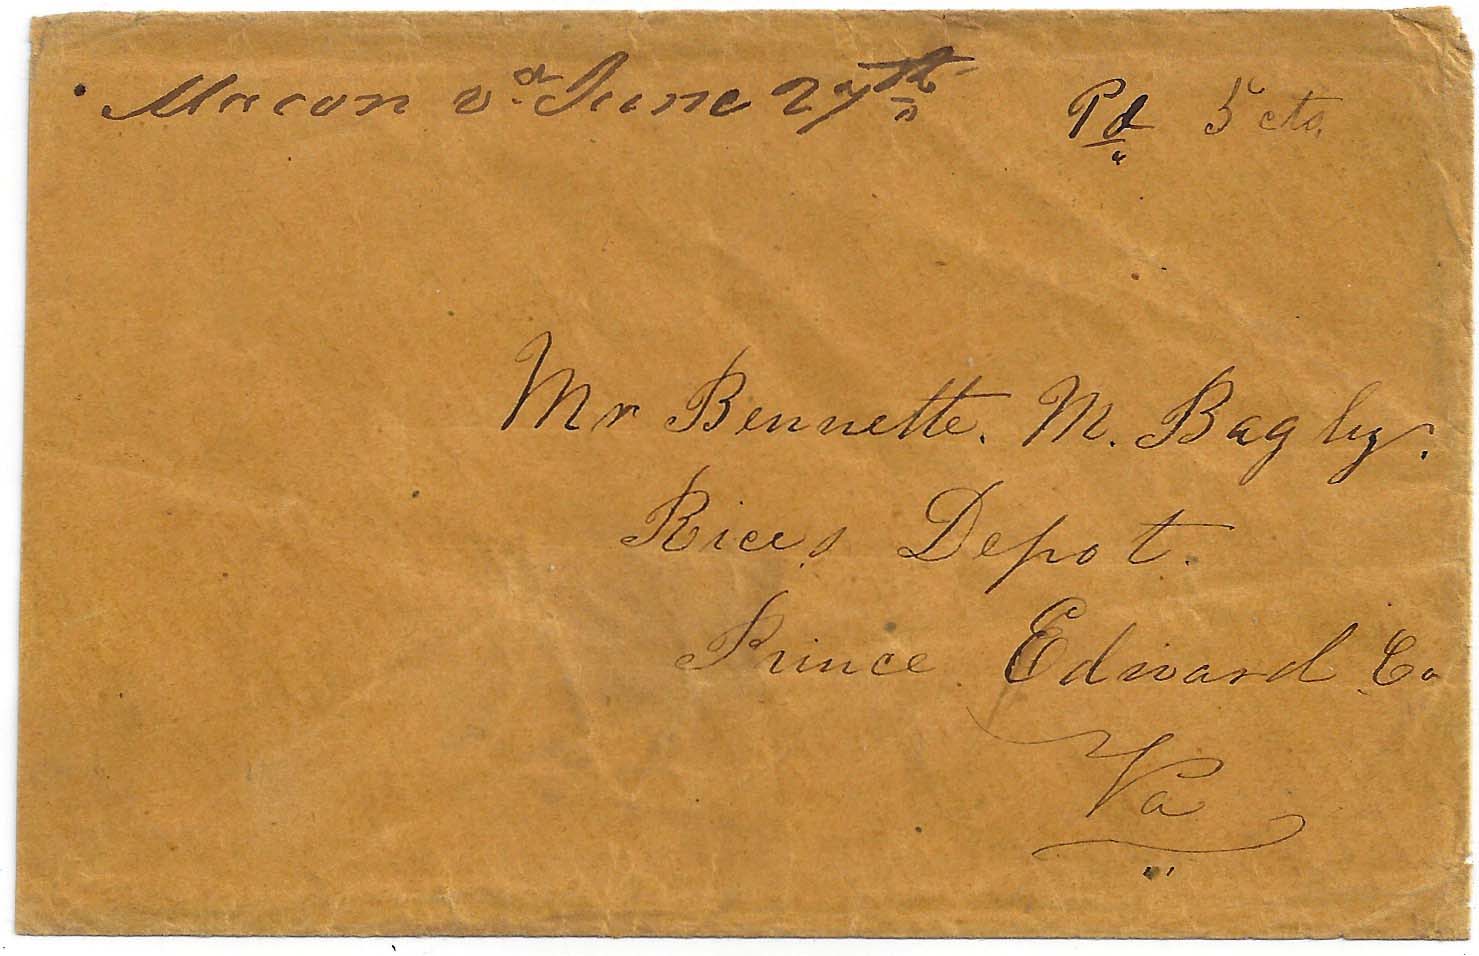 Macon va June 27th
Pd 5 cts.
Mr Bennette. M. Bagby.
Rices Depot.
Prince Edward Co
Va